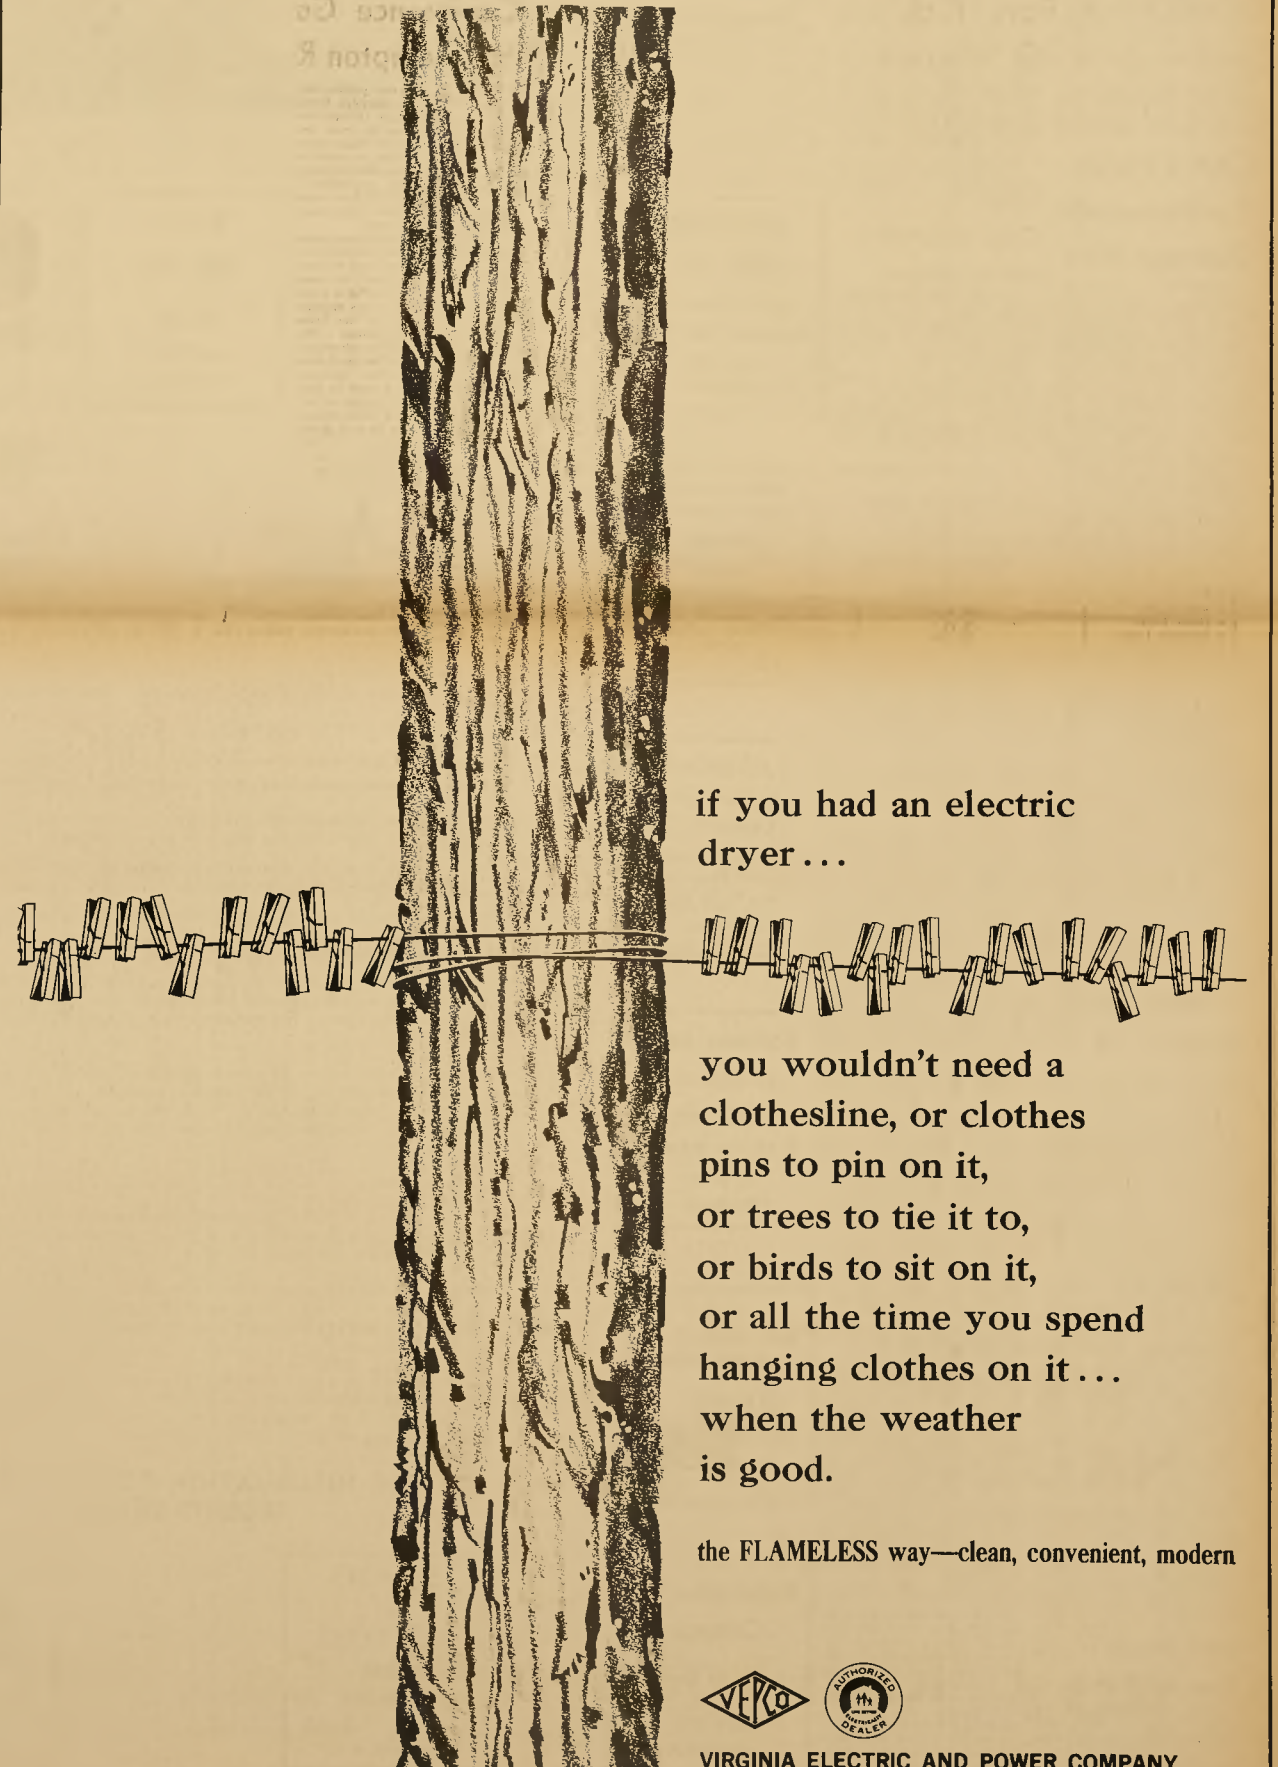 if you had an electric
dryer...
you wouldn't need a
clothesline, or clothes
pins to pin on it,
or trees to tie it to,
or birds to sit on it,
or all the time you spend
hanging clothes on it...
when the weather
is good.
the FLAMELESS way—clean, convenient, modern
VEPCO
AUTHORIZED
LIVE BETTER
ELECTRICALLY
DEALER
VIRGINIA ELECTRIC AND POWER COMPANY